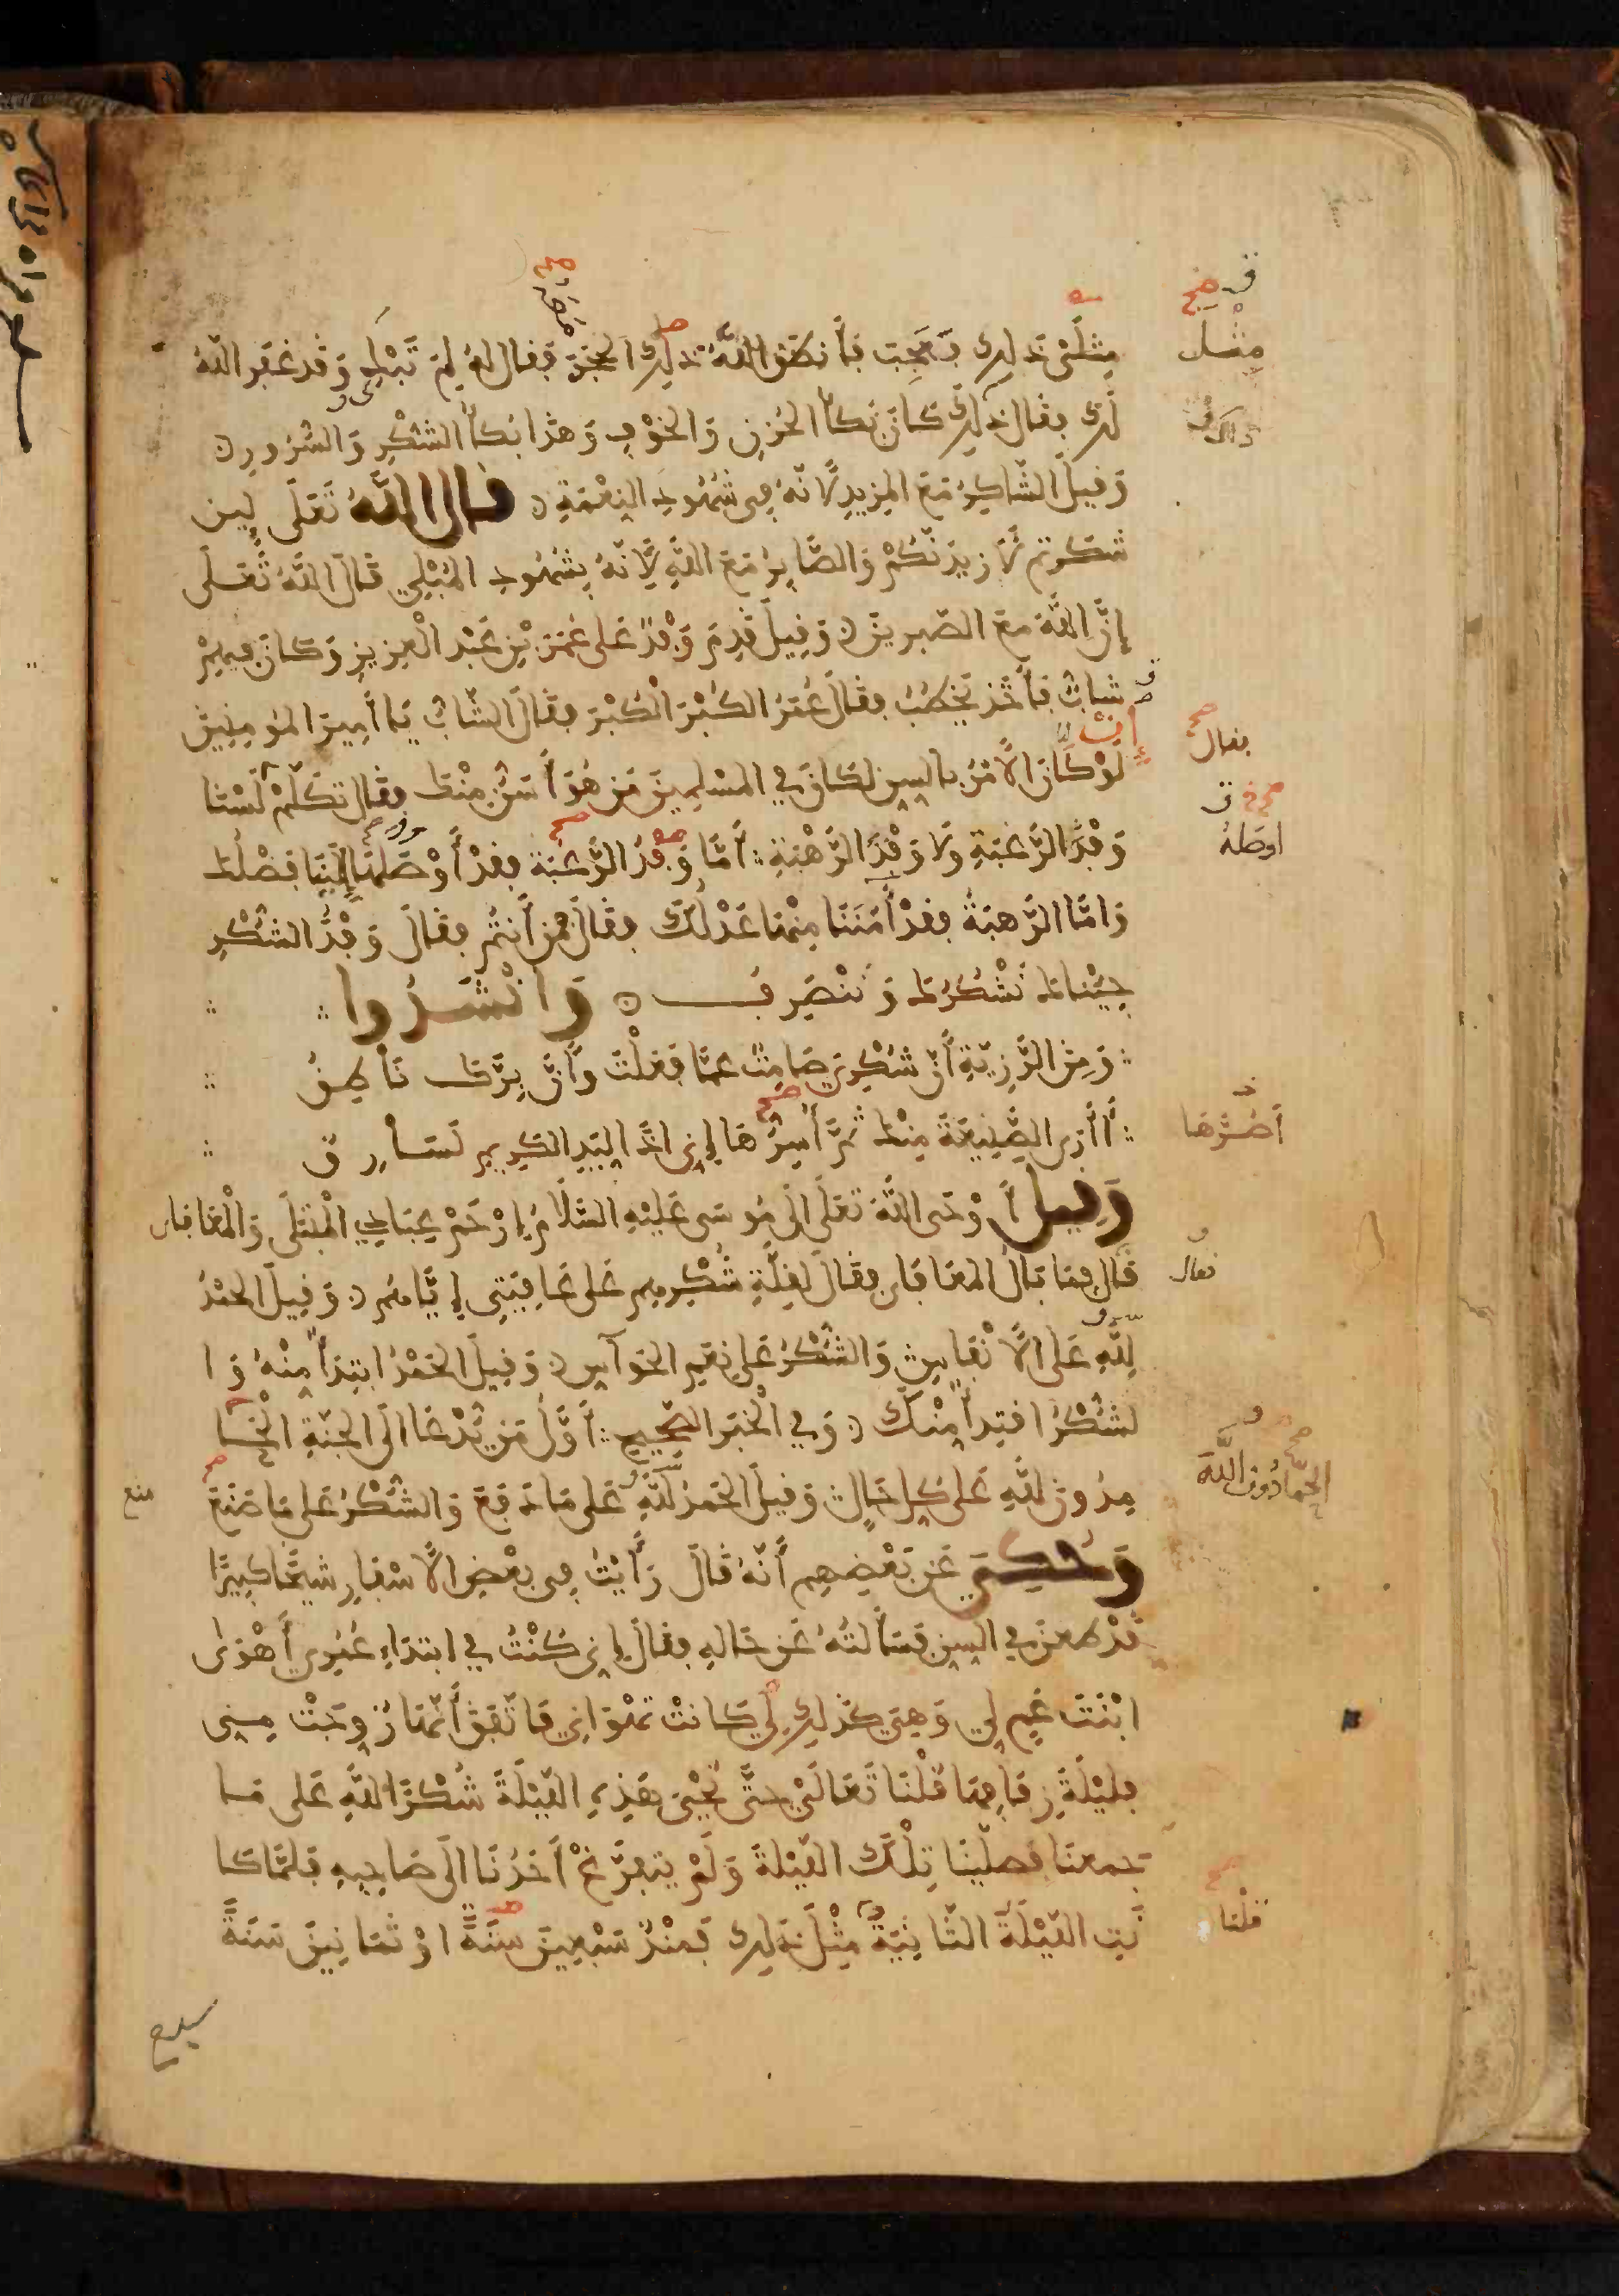 مثلى ذلك فتعجب فأنطق الله ذلك الحجر فقال له لم تبكي وقد غفر الله
لك فقال ذلك كان بكاء الحزن والخوف وهذا بكاء الشكر والسرور
وقيل الشاكر مع المزيد لأنه في شهود النعمة قال الله تعلى لين
شكرتم لأزيدنكم والصابر مع الله لأنه بشهود المبلي قال الله تعلى
إن الله مع الصبرين وقيل قدم وفد على عمر بن عبد العزيز وكان فيهم
شاب فأخذ يخطب فقال عمر الكبر الكبر فقال الشاب يا أمير المومنين
لو كان الأمر بالسن لكان في المسلمين من هو أسن منك فقال تكلم لسنا
وفد الرغبة ولا وفد الرهبة أما وفد الرغبة فقد أوصلها إلينا فضلك
واما الرهبة فقد أمننا منها عدلك فقال فمن أنتم فقال وفد الشكر
جيناك نشكرك وننصرف وانشدوا
ومن الرزية أن شكري صامت عما فعلت وأن برك ناطق
أأرى الصنيعة منك ثم أسرها إني اذا ليد الكريم لسارق
وقيل أوحى الله تعلى الى موسى عليه السلام إرحم عبادي المبتلى والمعافاى
قال فما بال المعافاى فقال لقلة شكرهم على عافيتي إياهم وقيل الحمد
لله على الأنفاس والشكر على نعم الحواس وقيل الحمد ابتداء منه وا
لشكر افتداء منك وفي الخبر الصحيح أول من يدعا الى الجنة الحا
مدون لله على كل حال وقيل الحمد لله على ما دفع والشكر على ما صنع
وحكي عن بعضهم أنه قال رأيت في بعض الأسفار شيخا كبيرا
قد طعن في السن فسألته عن حاله فقال إني كنت في ابتداء عمري أهوى
ابنت عم لي وهي كذلك لي كانت تهواني فاتفق أنها زوجت مني
فليلة زفافها قلنا تعالي حتى نحيى هذه الليلة شكرا لله على ما
جمعنا فصلينا تلك الليلة ولم يتفرغ أحدنا الى صاحبه فلما كا
نت الليلة الثانية مثل ذلك فمنذ سبعين سنة او ثمانين سنة
مثل
ذاك
فقال
اوصله
أضرها
فقال
الحمادون الله
منع
قلنا